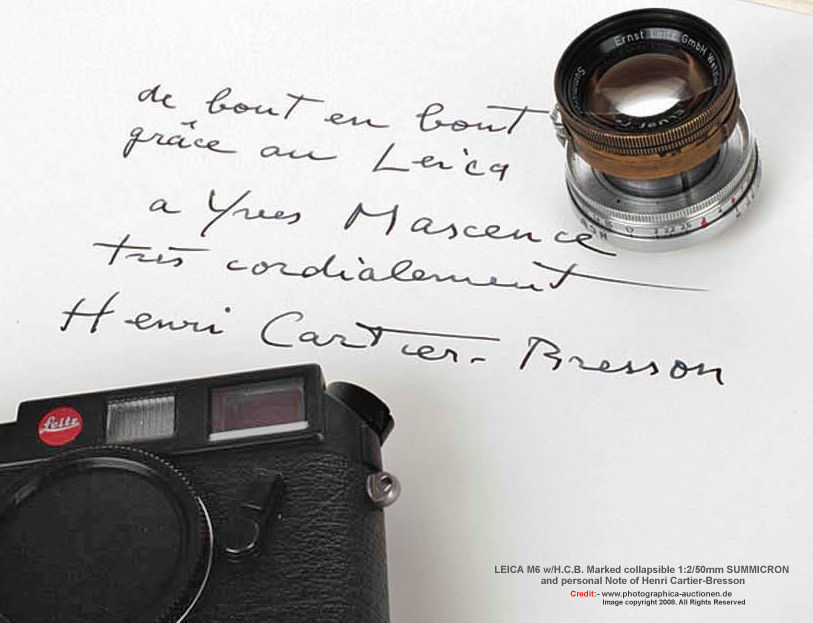 Ernst Leitz GmbH Wetzlar
de bout en bout
grâce au Leica
a Yves Mascence
très cordialement
Henri Cartier-Bresson
Leitz
LEICA M6 w/H.C.B. Marked collapsible 1:2/50mm SUMMICRON
and personal Note of Henri Cartier-Bresson
Credit:- www.photographica-auctionen.de
Image copyright 2008. All Rights Reserved